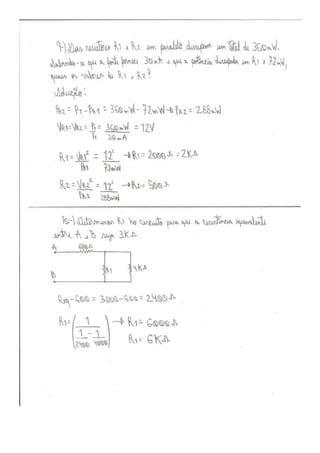 9-) Dois resistores R1 e R2 em paralelo dissipam um total de 360mW.
Sabendo-se que a fonte fornece 30mA e que a potência dissipada em R1 é 72mW,
quais os valores de R1 e R2?
Solução:
PR2 = PT - PR1 = 360mW - 72mW → PR2 = 288mW
VR1 = VR2 = Pt = 360mW = 12V
It 30mA
R1 = VR1² = 12² → R1 = 2000Ω = 2KΩ
PR1 72mW
R2 = VR2² = 12² → R2 = 500Ω
PR2 288mW
10-) Determinar R1 no circuito para que a resistência equivalente
entre A e B seja 3KΩ.
A 600Ω
R1 4KΩ
B
Req - 600 = 3000 - 600 = 2400Ω
R1 = ( 1 ) → R1 = 6000Ω
1 - 1 R1 = 6KΩ
2400 4000